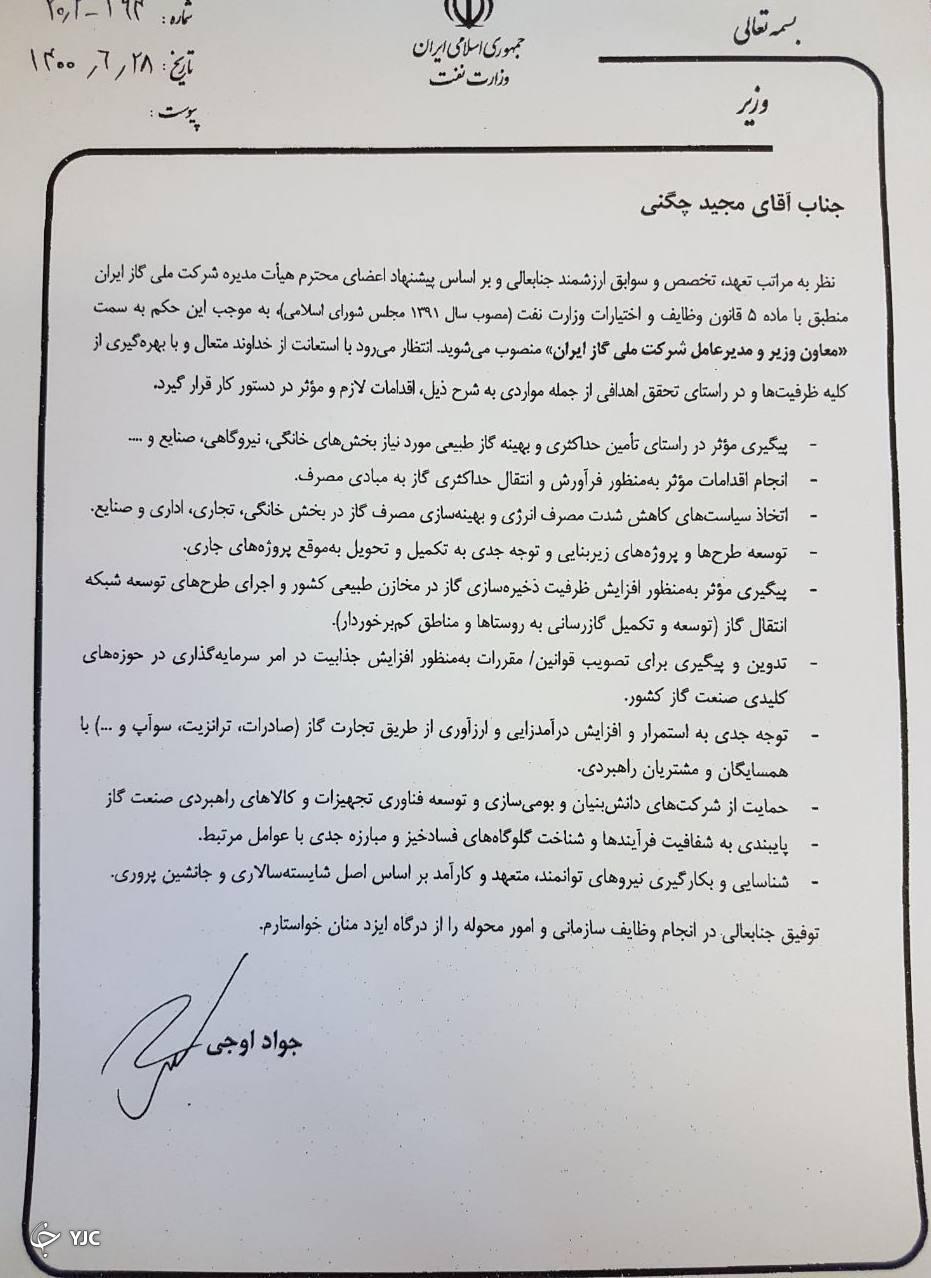 بسمه تعالی
جمهوری اسلامی ایران
وزارت نفت
وزیر
شماره :
تاریخ : ۱۴۰۰٫۶٫۲۸
پیوست :
جناب آقای مجید چگنی
نظر به مراتب تعهد، تخصص و سوابق ارزشمند جنابعالی و بر اساس پیشنهاد اعضای محترم هیأت مدیره شرکت ملی گاز ایران
منطبق با ماده ۵ قانون وظایف و اختیارات وزارت نفت (مصوب سال ۱۳۹۱ مجلس شورای اسلامی)، به موجب این حکم به سمت
«معاون وزیر و مدیرعامل شرکت ملی گاز ایران» منصوب می‌شوید. انتظار می‌رود با استعانت از خداوند متعال و با بهره‌گیری از
کلیه ظرفیت‌ها و در راستای تحقق اهدافی از جمله مواردی به شرح ذیل، اقدامات لازم و مؤثر در دستور کار قرار گیرد.
- پیگیری مؤثر در راستای تأمین حداکثری و بهینه گاز طبیعی مورد نیاز بخش‌های خانگی، نیروگاهی، صنایع و ....
- انجام اقدامات مؤثر به‌منظور فرآورش و انتقال حداکثری گاز به مبادی مصرف.
- اتخاذ سیاست‌های کاهش شدت مصرف انرژی و بهینه‌سازی مصرف گاز در بخش خانگی، تجاری، اداری و صنایع.
- توسعه طرح‌ها و پروژه‌های زیربنایی و توجه جدی به تکمیل و تحویل به‌موقع پروژه‌های جاری.
- پیگیری مؤثر به‌منظور افزایش ظرفیت ذخیره‌سازی گاز در مخازن طبیعی کشور و اجرای طرح‌های توسعه شبکه
انتقال گاز (توسعه و تکمیل گازرسانی به روستاها و مناطق کم‌برخوردار).
- تدوین و پیگیری برای تصویب قوانین/ مقررات به‌منظور افزایش جذابیت در امر سرمایه‌گذاری در حوزه‌های
کلیدی صنعت گاز کشور.
- توجه جدی به استمرار و افزایش درآمدزایی و ارزآوری از طریق تجارت گاز (صادرات، ترانزیت، سوآپ و ...) با
همسایگان و مشتریان راهبردی.
- حمایت از شرکت‌های دانش‌بنیان و بومی‌سازی و توسعه فناوری تجهیزات و کالاهای راهبردی صنعت گاز
- پایبندی به شفافیت فرآیندها و شناخت گلوگاه‌های فسادخیز و مبارزه جدی با عوامل مرتبط.
- شناسایی و بکارگیری نیروهای توانمند، متعهد و کارآمد بر اساس اصل شایسته‌سالاری و جانشین پروری.
توفیق جنابعالی در انجام وظایف سازمانی و امور محوله را از درگاه ایزد منان خواستارم.
جواد اوجی
YJC